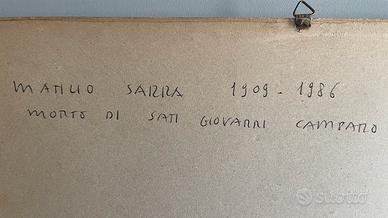 MANLIO SARRA 1909-1986
MONTO DI SATI GIOVANNI CAMPANO
subito